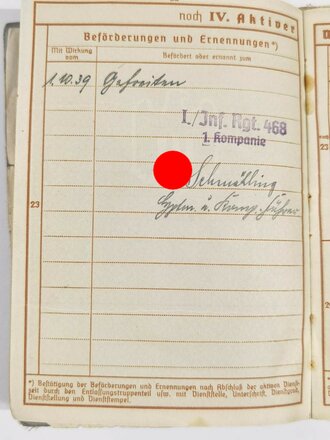 noch IV. Aktiver
Beförderungen und Ernennungen*)
Mit Wirkung
vom
Befördert oder ernannt zum
1.10.39 Gefreiten
I./Inf. Rgt. 468
1. Kompanie
Schmähling
Hptm. u. Komp. Führer
23
*) Bestätigung der Beförderungen und Ernennungen nach Abschluß der aktiven Dienst-
zeit durch den Entlassungstruppenteil usw. mit Dienststelle, Unterschrift, Dienstgrad,
Dienststellung und Dienststempel.